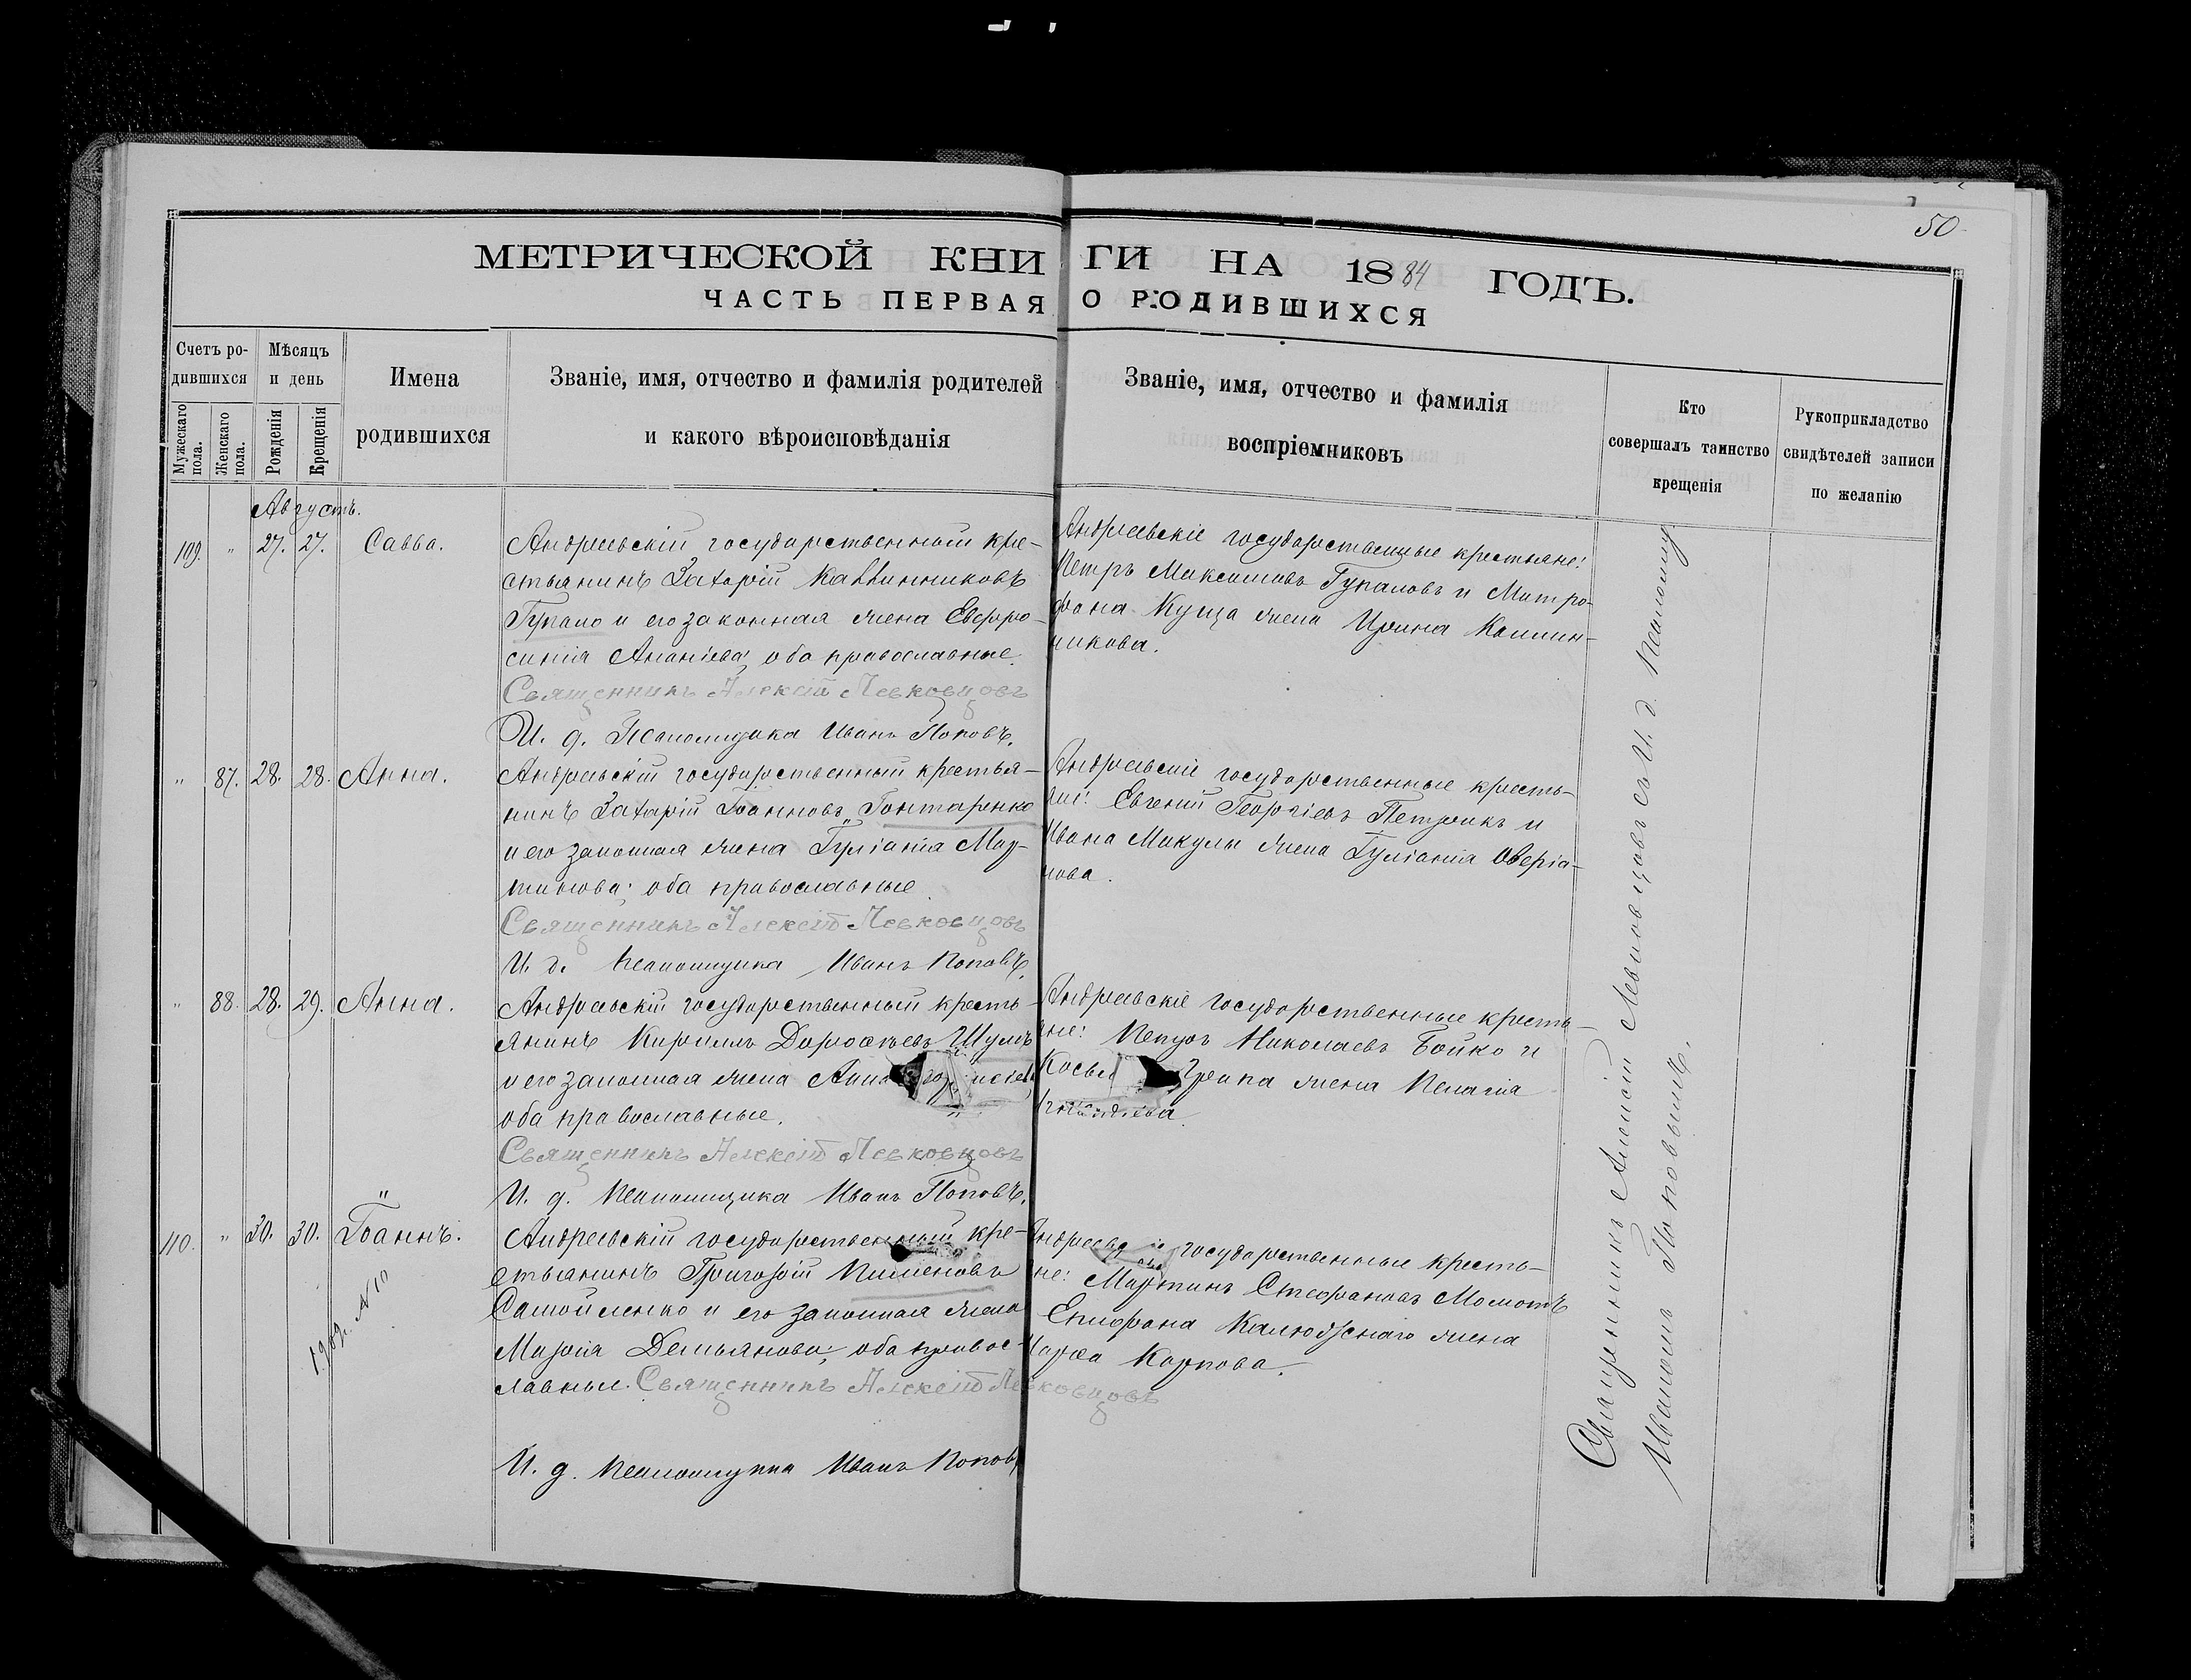 50
МЕТРИЧЕСКОЙ КНИГИ НА 1884 ГОДЪ.
ЧАСТЬ ПЕРВАЯ О РОДИВШИХСЯ
Счетъ ро-
дившихся
Мужескаго
пола.
Женскаго
пола.
Мѣсяцъ
и день
Рожденія
Крещенія
Имена
родившихся
Званіе, имя, отчество и фамилія родителей
и какого вѣроисповѣданія
Званіе, имя, отчество и фамилія
воспріемниковъ
Кто
совершалъ таинство
крещенія
Рукоприкладство
свидѣтелей записи
по желанію
Августъ.
109. " 27. 27. Савва.
Андреевскій государственный кре-
стьянинъ Захарій Каллинниковъ
Гупало и его законная жена Евфро-
синія Ананіева; оба православные.
Священникъ Алексій Левковцовъ
И. д. Псаломщика Иванъ Поповъ.
Андреевскіе государственные крестьяне:
Петръ Максимовъ Гупаловъ и Митро-
фана Куща жена Ирина Каллин-
никова.
" 87. 28. 28. Анна.
Андреевскій государственный крестья-
нинъ Захарій Іоанновъ Гонтаренко
и его законная жена Іуліанія Мар-
тинова; оба православные.
Священникъ Алексій Левковцовъ
И. д. Псаломщика Иванъ Поповъ.
Андреевскіе государственные кресть-
яне: Евгеній Георгіевъ Петрикъ и
Ивана Микулы жена Іуліанія Аверіа-
нова.
" 88. 28. 29. Анна.
Андреевскій государственный кресть-
янинъ Кириллъ Дорофѣевъ Шумъ
и его законная жена Анна
оба православные.
Священникъ Алексій Левковцовъ
И. д. Псаломщика Иванъ Поповъ.
Андреевскіе государственные кресть-
яне: Петръ Николаевъ Бойко и
жена Пелагія
110. " 30. 30. Іоаннъ.
1909 г. № 10
Андреевскій государственный кре-
стьянинъ Григорій Пименовъ
Самойленко и его законная жена
Марія Демьянова; оба правос-
лавные. Священникъ Алексій Левковцовъ
И. д. Псаломщика Иванъ Поповъ
Андреевскіе государственные кресть-
яне: Мартинъ Стефановъ Момотъ
Епифана Калюжнаго жена
Марфа Карпова.
Священникъ Алексій Левковцовъ съ И. д. Псаломщ.
Иваномъ Поповымъ.